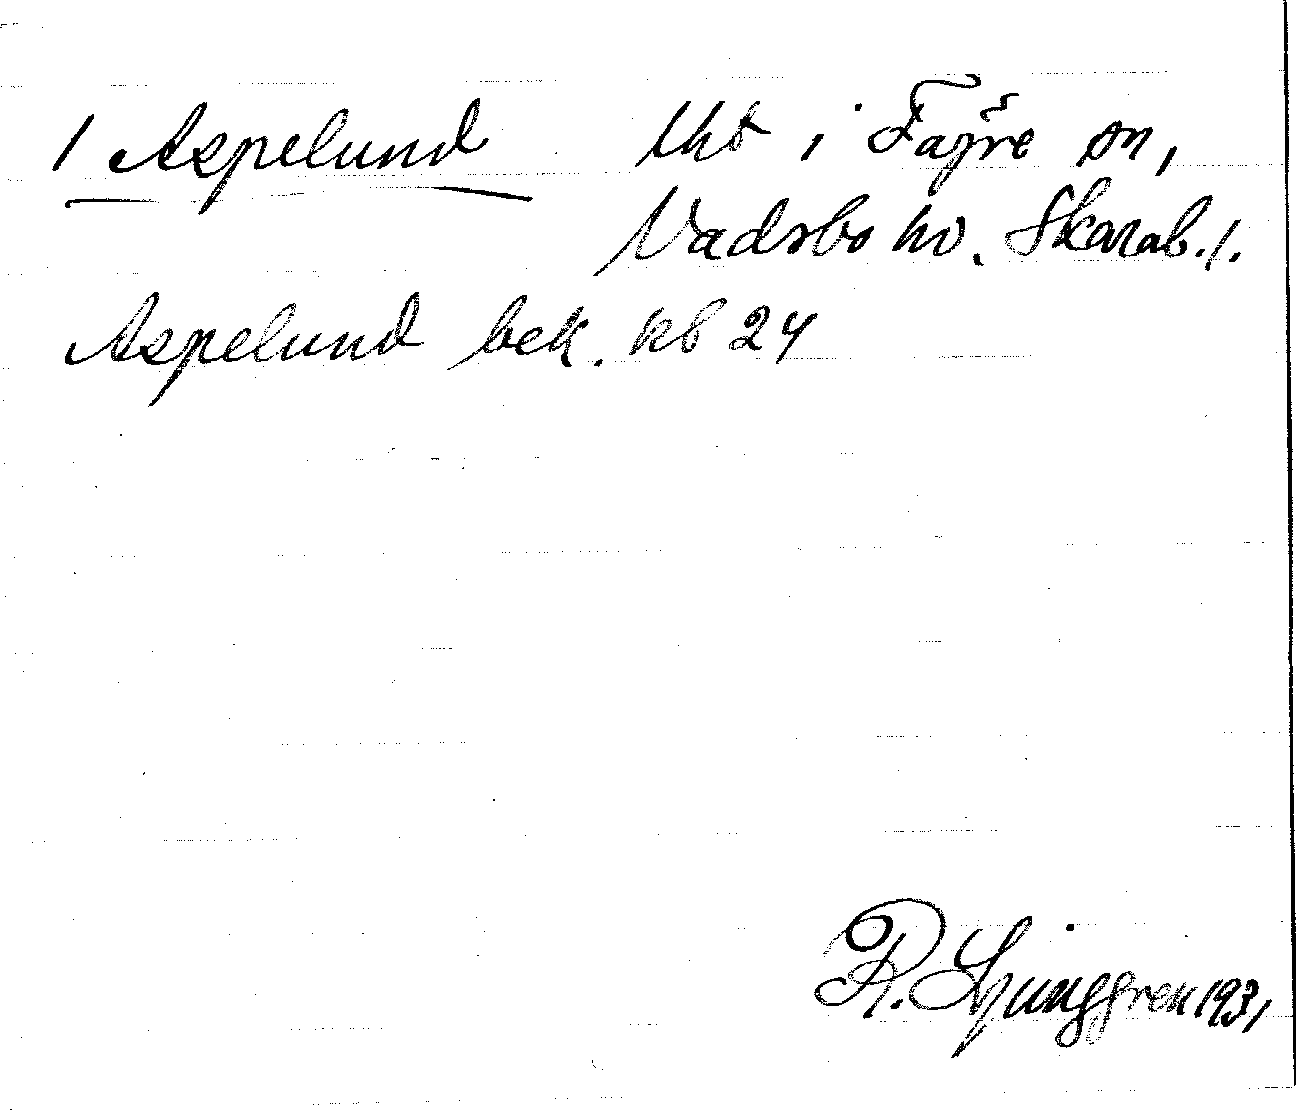 1 Aspelund lht i Fägre sn,
Vadsbo hd. Skarab. l.
Aspelund bek. kb 24
R. Ljunggren 1931